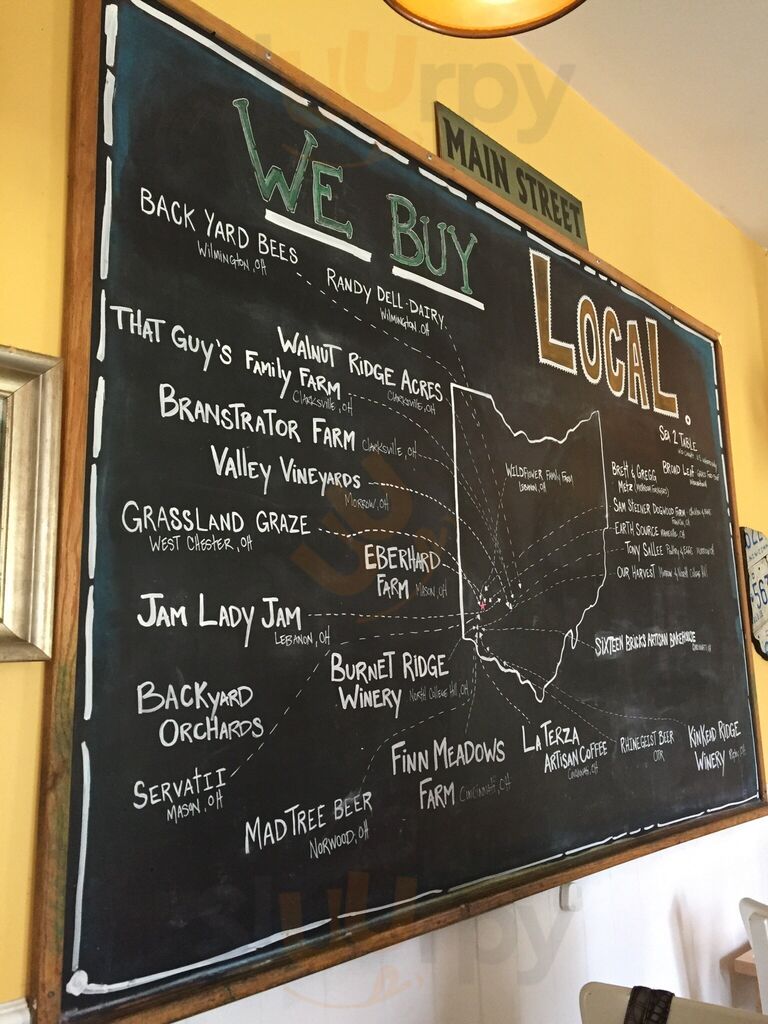 MAIN STREET
WE BUY
LOCAL.
BACK YARD BEES
WILMINGTON, OH
RANDY DELL-DAIRY
WILMINGTON, OH
THAT GUY'S FAMILY FARM
CLARKSVILLE, OH
WALNUT RIDGE ACRES
CLARKSVILLE, OH
BRANSTRATOR FARM CLARKSVILLE, OH
VALLEY VINEYARDS
MORROW, OH
GRASSLAND GRAZE
WEST CHESTER, OH
EBERHARD
FARM MASON, OH
JAM LADY JAM
LEBANON, OH
BURNET RIDGE
WINERY NORTH COLLEGE HILL, OH
BACKYARD
ORCHARDS
SERVATII
MASON, OH
MADTREE BEER
NORWOOD, OH
FINN MEADOWS
FARM CINCINNATI, OH
LA TERZA
ARTISAN COFFEE
CINCINNATI, OH
RHINEGEIST BEER
OTR
KINKEAD RIDGE
WINERY
SIXTEEN BRICKS ARTISAN BAKEHOUSE
CINCINNATI, OH
WILDFLOWER FAMILY FARM
LEBANON, OH
SEA 2 TABLE
BROAD LEAF
BRETT & GREGG
METZ
SAM STEINER DOGWOOD FARM
EARTH SOURCE
TONY SALLEE
OUR HARVEST
56
sluurpy
sluurpy